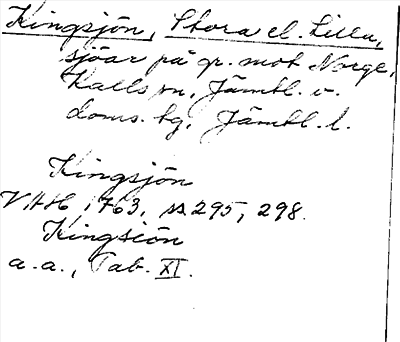 Kingsjön, Stora el. Lilla,
sjöar på gr. mot Norge,
Kalls sn, Jämtl. v.
doms. tg, Jämtl. l.
Kingsjön
VHH, 1763, ss. 295, 298.
Kingsiön
a.a., Tab. XI.